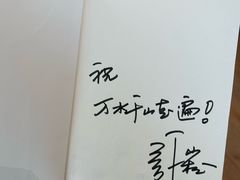 祝
万水千山走遍!